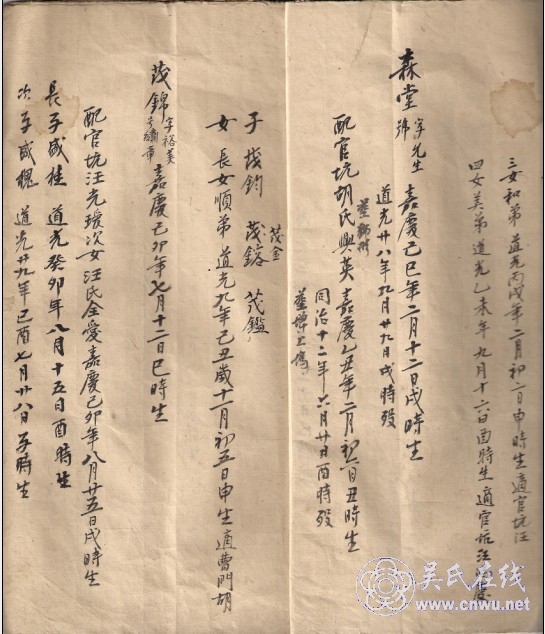 三女和弟 道光丙戌年二月初二日申時生適官坑汪
四女美弟 道光乙未年九月十六日酉時生適官坑汪
森堂 字先生 號 嘉慶己巳年二月十二日戌時生
道光廿八年九月廿九日戌時歿
配官坑胡氏興英嘉慶乙丑年二月初六日丑時生
同治十二年六月廿日酉時歿
子 茂鈞 茂鎔 茂鑑
茂金
女 長女順弟 道光九年己丑歲十一月初五日申生適曹門胡
茂錦 字裕美 嘉慶己卯年七月十二日巳時生
配官坑汪光瑗次女汪氏全愛嘉慶己卯年八月廿五日戌時生
長子咸桂 道光癸卯年八月十五日酉時生
次子咸槐 道光廿九年己酉七月廿八日子時生
吴氏在线
www.cnwu.net